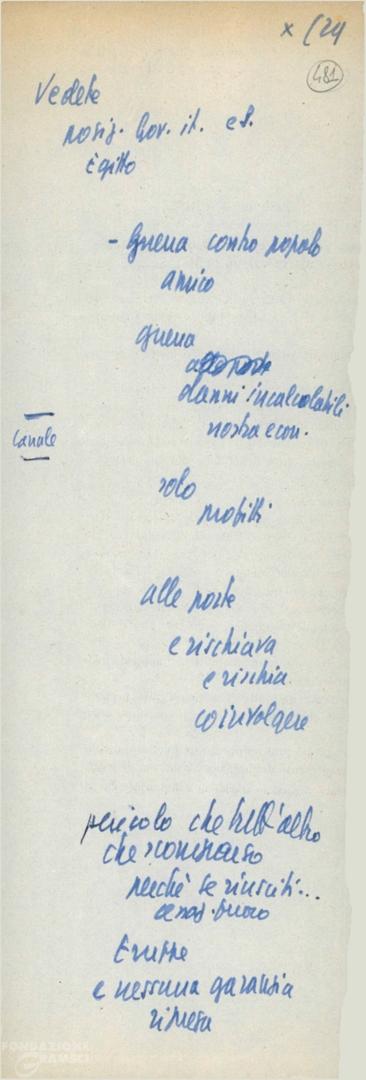 x (24
481
Vedete
posiz. Gov. it. e S.
Egitto
- Guerra contro popolo
amico
guerra
alle porte
danni incalcolabili
nostra econ.
Canale
solo
profitti
alle porte
e rischiava
e rischia
coinvolgere
pericolo che tutt'altro
che scomparso
perché se riusciti...
cessaz. fuoco
truppe
e nessuna garanzia
ripresa
FONDAZIONE
GRAMSCI